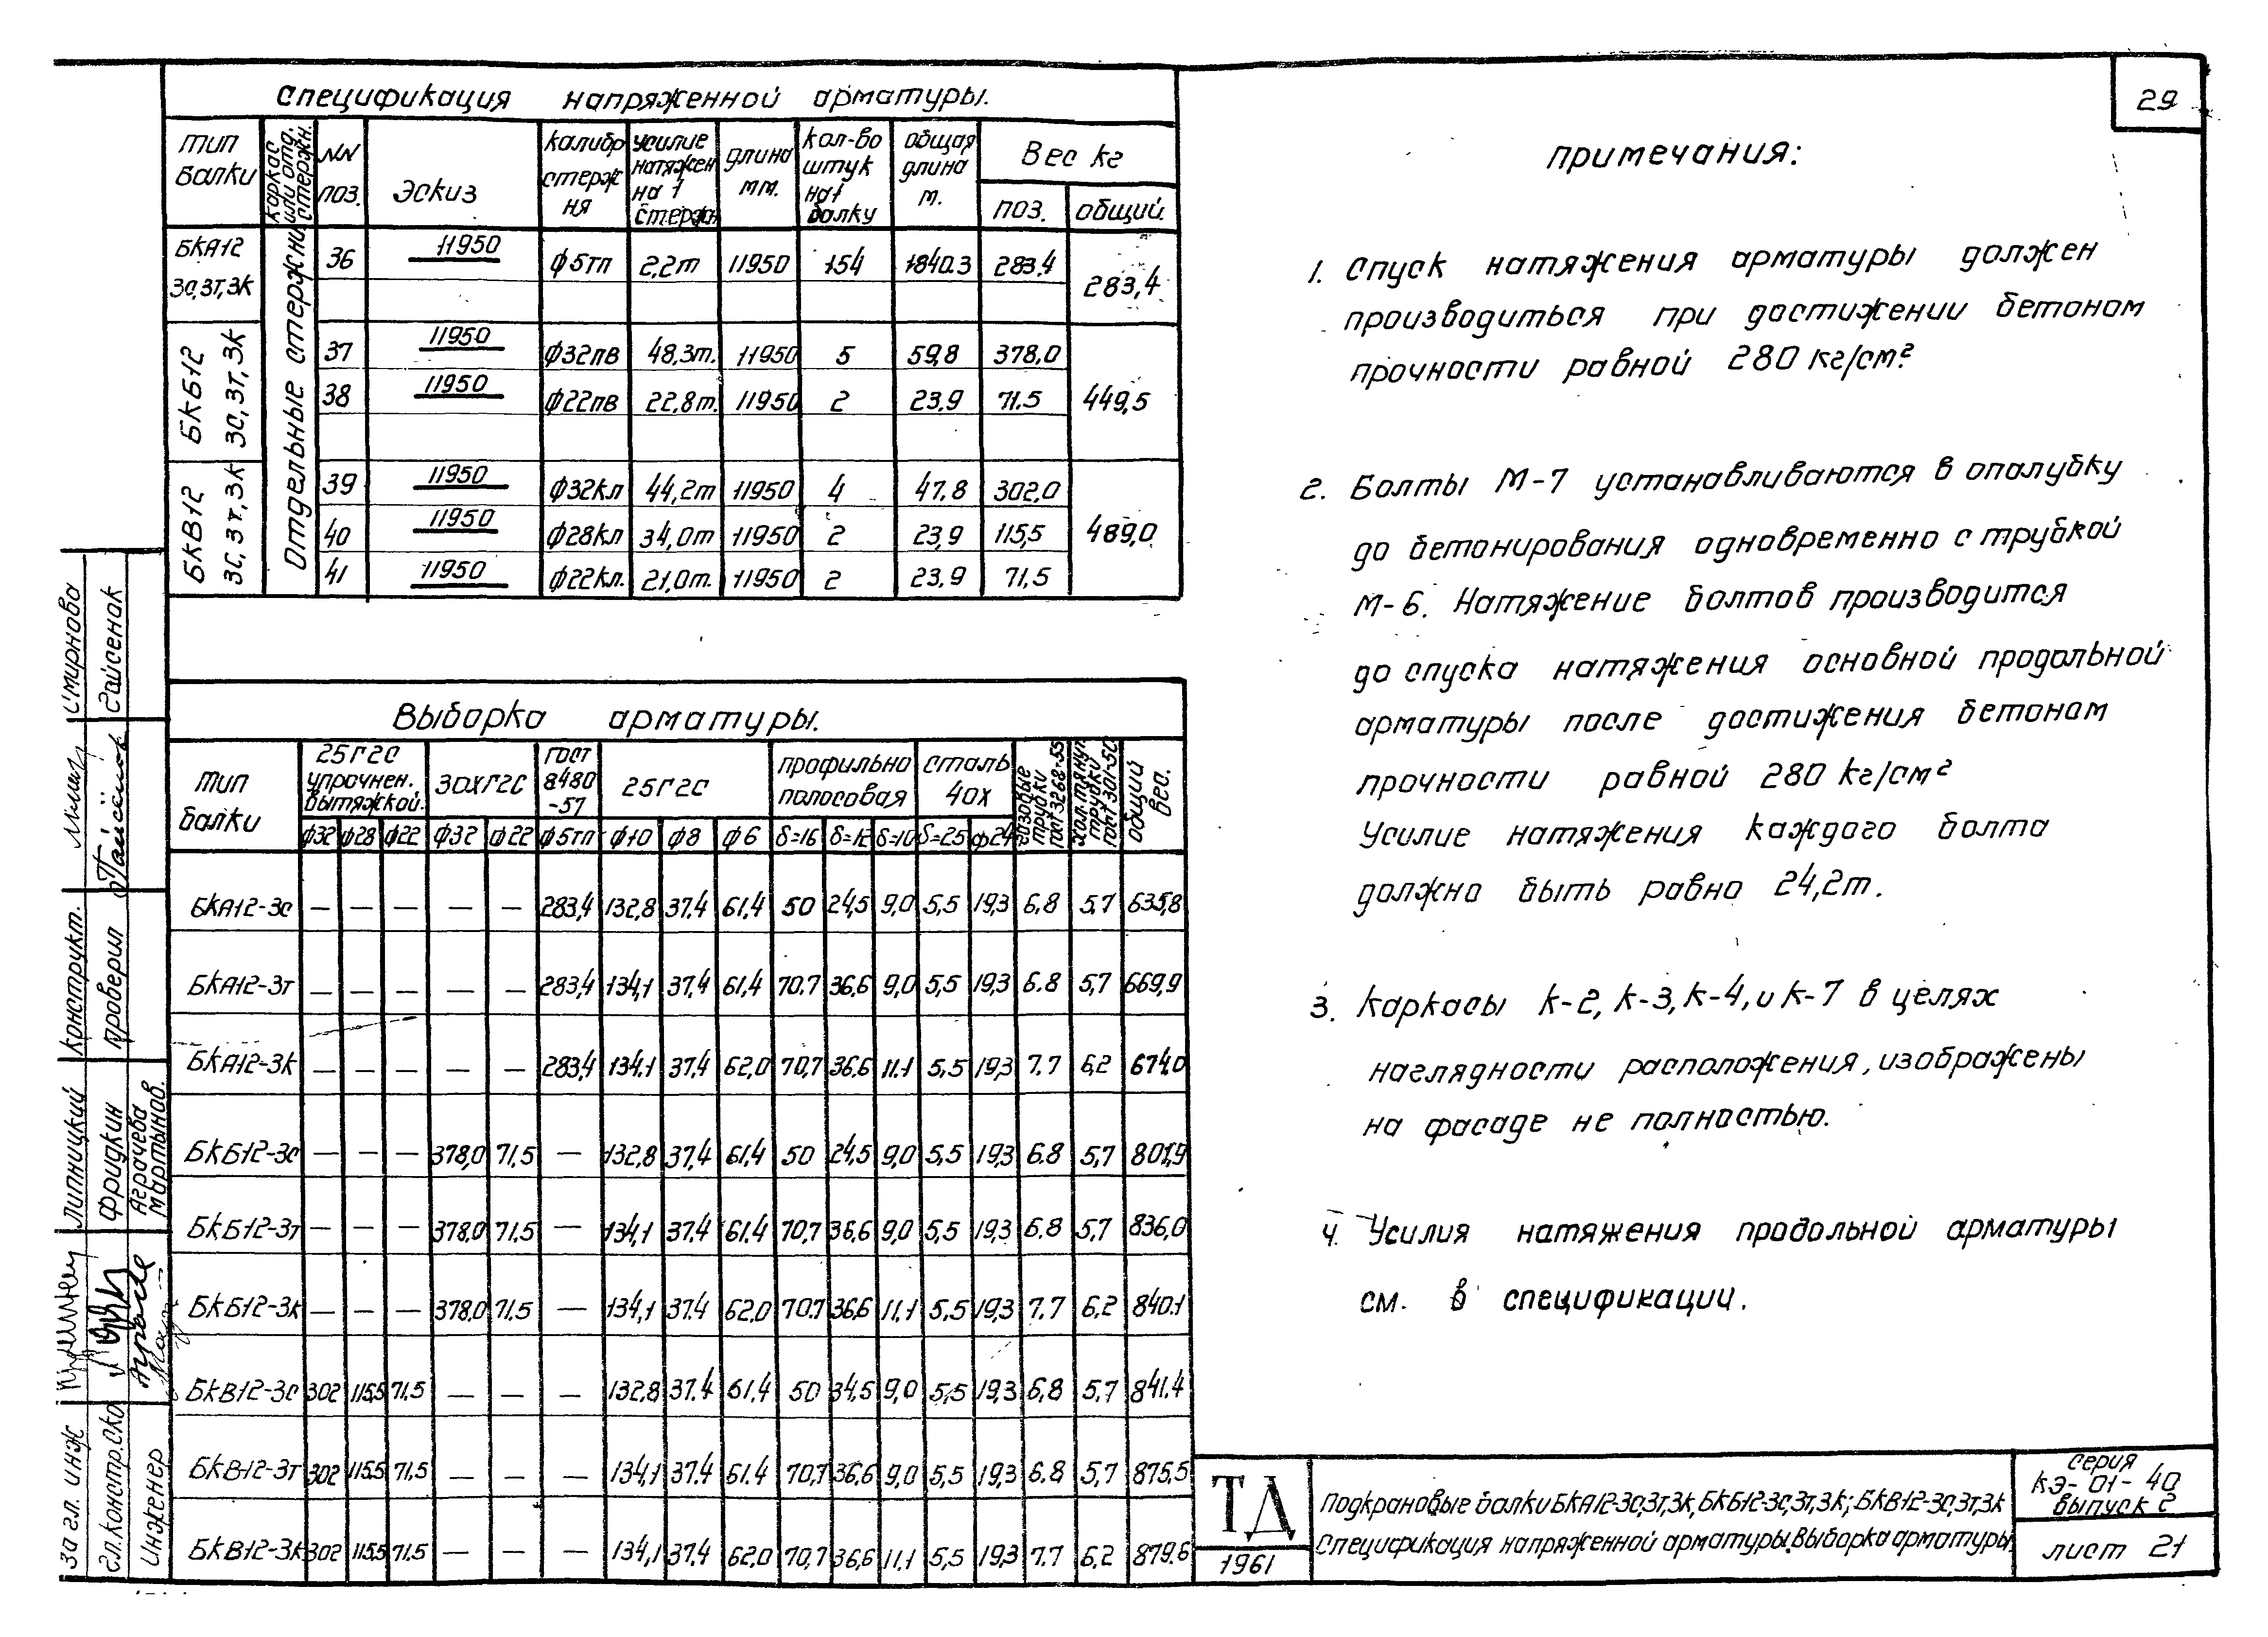 29
Спецификация напряженной арматуры.
Тип балки | каркас или отд. стержн. | NN поз. | Эскиз | калибр стерж ня | усилие натяжен на 1 стержн | длина мм. | кол-во штук на 1 балку | общая длина м. | Вес кг
поз. | общий.
Отдельные стержни
БКА12 3с,3т,3к | 36 | 11950 | ф5тп | 2,2т | 11950 | 154 | 1840.3 | 283.4 | 283,4
БКБ12 3с,3т,3к | 37 | 11950 | ф32пв | 48,3т. | 11950 | 5 | 59,8 | 378,0 | 449,5
38 | 11950 | ф22пв | 22,8т. | 11950 | 2 | 23,9 | 71.5
БКВ12 3с,3т,3к | 39 | 11950 | ф32кл | 44,2т | 11950 | 4 | 47.8 | 302,0 | 489,0
40 | 11950 | ф28кл | 34,0т | 11950 | 2 | 23,9 | 115,5
41 | 11950 | ф22кл. | 21,0т. | 11950 | 2 | 23,9 | 71,5
Выборка арматуры.
Тип балки | 25г2с упрочнен. вытяжкой. | 30хг2с | гост 8480 -57 | 25г2с | профильно полосовая | сталь 40х | газовые трубки гост 3268-55 | хол. тянут. трубки гост 301-50 | общий вес.
ф32 | ф28 | ф22 | ф32 | ф22 | ф5тп | ф10 | ф8 | ф6 | δ=16 | δ=12 | δ=10 | δ=25 | ф24
БКА12-3с | — | — | — | — | — | 283,4 | 132,8 | 37.4 | 61.4 | 50 | 24,5 | 9,0 | 5,5 | 19,3 | 6.8 | 5.7 | 635,8
БКА12-3т | — | — | — | — | — | 283,4 | 134,1 | 37,4 | 61,4 | 70.7 | 36,6 | 9,0 | 5,5 | 19,3 | 6.8 | 5,7 | 669,9
БКА12-3к | — | — | — | — | — | 283,4 | 134.1 | 37.4 | 62,0 | 70,7 | 36,6 | 11.1 | 5,5 | 19,3 | 7.7 | 6,2 | 674.0
БКБ12-3с | — | — | — | 378,0 | 71,5 | — | 132,8 | 37,4 | 61,4 | 50 | 24,5 | 9,0 | 5,5 | 19,3 | 6.8 | 5,7 | 801,9
БКБ12-3т | — | — | — | 378,0 | 71,5 | — | 134,1 | 37.4 | 61.4 | 70,7 | 36,6 | 9,0 | 5,5 | 19,3 | 6.8 | 5,7 | 836,0
БКБ12-3к | — | — | — | 378,0 | 71.5 | — | 134,1 | 37.4 | 62.0 | 70.7 | 36,6 | 11,1 | 5,5 | 19,3 | 7.7 | 6,2 | 840.1
БКВ12-3с | 302 | 115,5 | 71,5 | — | — | — | 132,8 | 37.4 | 61,4 | 50 | 34,5 | 9,0 | 5,5 | 19,3 | 6,8 | 5,7 | 841.4
БКВ12-3т | 302 | 115,5 | 71,5 | — | — | — | 134,1 | 37.4 | 61.4 | 70,7 | 36,6 | 9,0 | 5,5 | 19,3 | 6.8 | 5,7 | 875,5
БКВ12-3к | 302 | 115,5 | 71.5 | — | — | — | 134,1 | 37.4 | 62.0 | 70,7 | 36,6 | 11,1 | 5,5 | 19,3 | 7.7 | 6,2 | 879.6
примечания:
1. Спуск натяжения арматуры должен
производиться при достижении бетоном
прочности равной 280 кг/см²
2. Болты М-7 устанавливаются в опалубку
до бетонирования одновременно с трубкой
М-6. Натяжение болтов производится
до спуска натяжения основной продольной
арматуры после достижения бетоном
прочности равной 280 кг/см²
Усилие натяжения каждого болта
должно быть равно 24,2т.
3. Каркасы К-2, К-3, К-4, и К-7 в целях
наглядности расположения, изображены
на фасаде не полностью.
4. Усилия натяжения продольной арматуры
см. в спецификации.
ТД
1961
Подкрановые балки БКА12-3с,3т,3к, БКБ12-3с,3т,3к; БКВ12-3с,3т,3к
Спецификация напряженной арматуры. Выборка арматуры.
серия
КЭ-01-40
выпуск 2
лист 21
Смирнова
Гайсенак
конструкт.
проверил
Липницкий
Фридкин
Аграчева
Мартынов.
За гл. инж
Гл.констр.СКО
Инженер